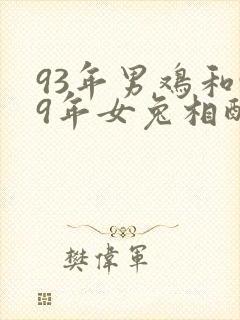 93年男鸡和
9年女兔相
樊偉軍